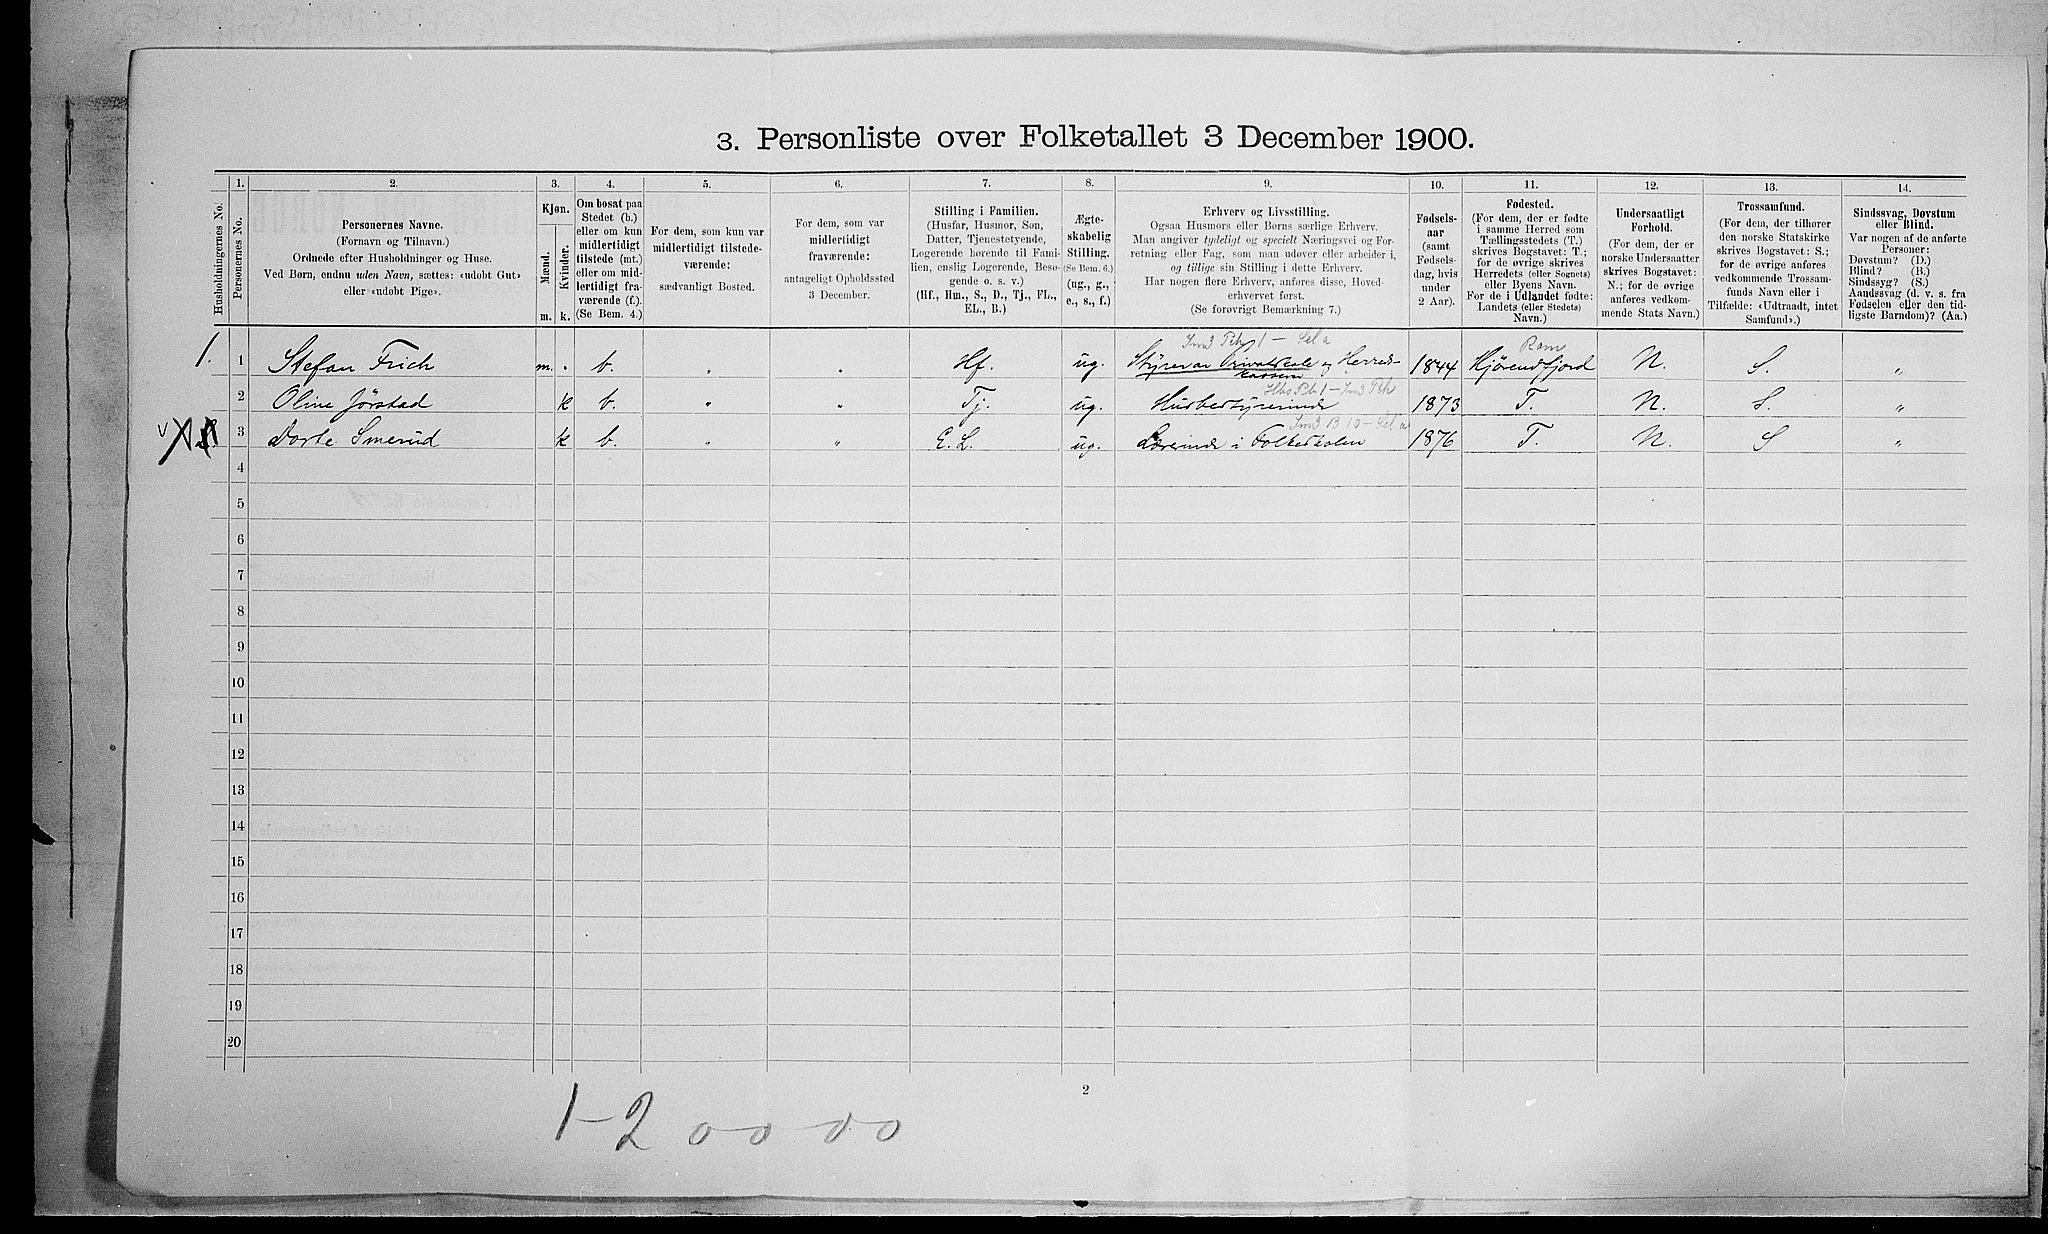 3. Personliste over Folketallet 3 December 1900.
Husholdningernes No.
1.
Personernes No.
2.
Personernes Navne.
(Fornavn og Tilnavn.)
Ordnede efter Husholdninger og Huse.
Ved Børn, endnu uden Navn, sættes: «udobt Gut»
eller «udobt Pige».
3.
Kjøn.
Mænd.
Kvinder.
m. k.
4.
Om bosat paa
Stedet (b.)
eller om kun
midlertidigt
tilstede (mt.)
eller om mid-
lertidigt fra-
værende (f.)
(Se Bem. 4.)
5.
For dem, som kun var
midlertidigt tilstede-
værende:
sædvanligt Bosted.
6.
For dem, som var
midlertidigt
fraværende:
antageligt Opholdssted
3 December.
7.
Stilling i Familien.
(Husfar, Husmor, Søn,
Datter, Tjenestetyende,
Logerende hørende til Fami-
lien, enslig Logerende, Besø-
gende o. s. v.)
(Hf., Hm., S., D., Tj., FL.,
EL., B.)
8.
Ægte-
skabelig
Stilling.
(Se Bem. 6.)
(ug., g.,
e., s., f.)
9.
Erhverv og Livsstilling.
Ogsaa Husmors eller Børns særlige Erhverv.
Man angiver tydeligt og specielt Næringsvei og For-
retning eller Fag, som man udøver eller arbeider i,
og tillige sin Stilling i dette Erhverv.
Har nogen flere Erhverv, anføres disse, Hoved-
erhvervet først.
(Se forøvrigt Bemærkning 7.)
10.
Fødsels-
aar
(samt
Fødsels-
dag, hvis
under
2 Aar).
11.
Fødested.
(For dem, der er fødte
i samme Herred som
Tællingsstedets (T.)
skrives Bogstavet: T.;
for de øvrige skrives
Herredets (eller Sognets)
eller Byens Navn.
For de i Udlandet fødte:
Landets (eller Stedets)
Navn.)
12.
Undersaatligt
Forhold.
(For dem, der er
norske Undersaatter
skrives Bogstavet:
N.; for de øvrige
anføres vedkom-
mende Stats Navn.)
13.
Trossamfund.
(For dem, der tilhører
den norske Statskirke
skrives Bogstavet: S.;
for de øvrige anføres
vedkommende Trossam-
funds Navn eller i
Tilfælde: «Udtraadt, intet
Samfund».)
14.
Sindssvag, Døvstum
eller Blind.
Var nogen af de anførte
Personer:
Døvstum? (D.)
Blind? (B.)
Sindssyg? (S.)
Aandssvag (d. v. s. fra
Fødselen eller den tid-
ligste Barndom)? (Aa.)
Rom
1. 1 Stefan Frich m. b. Hf. ug. Styrer av Privatskole og Herreds- 1844 Hjørendfjord N. S. "
kassere
2 Oline Jørstad k b. " " Tj. ug. Husbestyrerinde 1873 T. N. S. "
3 Dorte Smerud k b. " " E. L. ug. Lærerinde i Folkeskolen 1876 T. N. S "
4
5
6
7
8
9
10
11
12
13
14
15
16
17
18
19
20
2
1-2 00 00